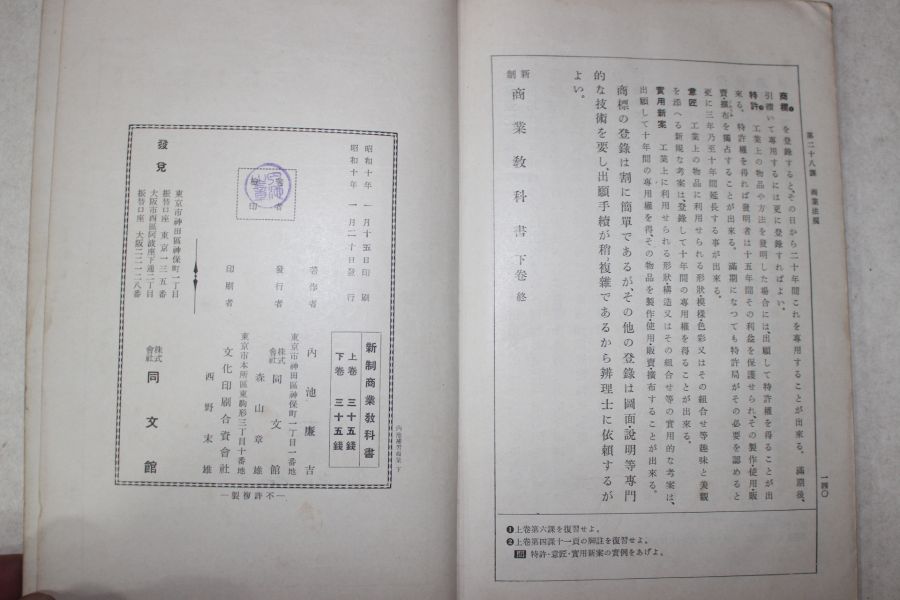 第二十八課 商業法規
一四〇
商標❶ を登錄すると、その日から二十年間これを專用することが出來る。滿期後、
引續いて專用するには更に登錄すればよい。
特許❷ 工業上の物品や方法を發明した場合には、出願して特許權を得ることが出
來る。特許權を得れば發明者は十五年間その利益を保護せられ、その製作・使用・販
賣・擴布を獨占することが出來る。滿期になつても特許局がその必要を認めると
更に三年乃至十年間延長する事が出來る。
意匠 工業上の物品に利用せられる形狀・模樣・色彩又はその組合せ等趣味と美觀
を添へる新規な考案は、登錄して十年間の專用權を得ることが出來る。
實用新案 工業上に利用せられる形狀・構造又はその組合せ等の實用的な考案は、
出願して十年間の專用權を得、その物品を製作・使用・販賣・擴布することが出來る。
商標の登錄は割に簡單であるが、その他の登錄は圖面・說明等專門
的な技術を要し出願手續が稍〻複雜であるから辨理士に依賴するが
よい。
新制 商業敎科書 下卷 終
❶上卷第六課を復習せよ。
❷上卷第四課十一頁の脚註を復習せよ。
問 特許・意匠・實用新案の實例をあげよ。
內池補習商業 下
新制商業敎科書
上卷 三十五錢
下卷 三十五錢
昭和十年 一月十五日印刷
昭和十年 一月二十日發行
著作者 內池廉吉
東京市神田區神保町一丁目一番地
發行者 株式會社 同文館
森山章雄
東京市本所區東駒形三丁目十番地
印刷者 文化印刷合資會社
西野末雄
發兌
東京市神田區神保町一丁目
振替口座 東京一三五番
大阪市西區阿波座下通二丁目
振替口座 大阪二二一二八番
株式會社 同文館
―不許複製―